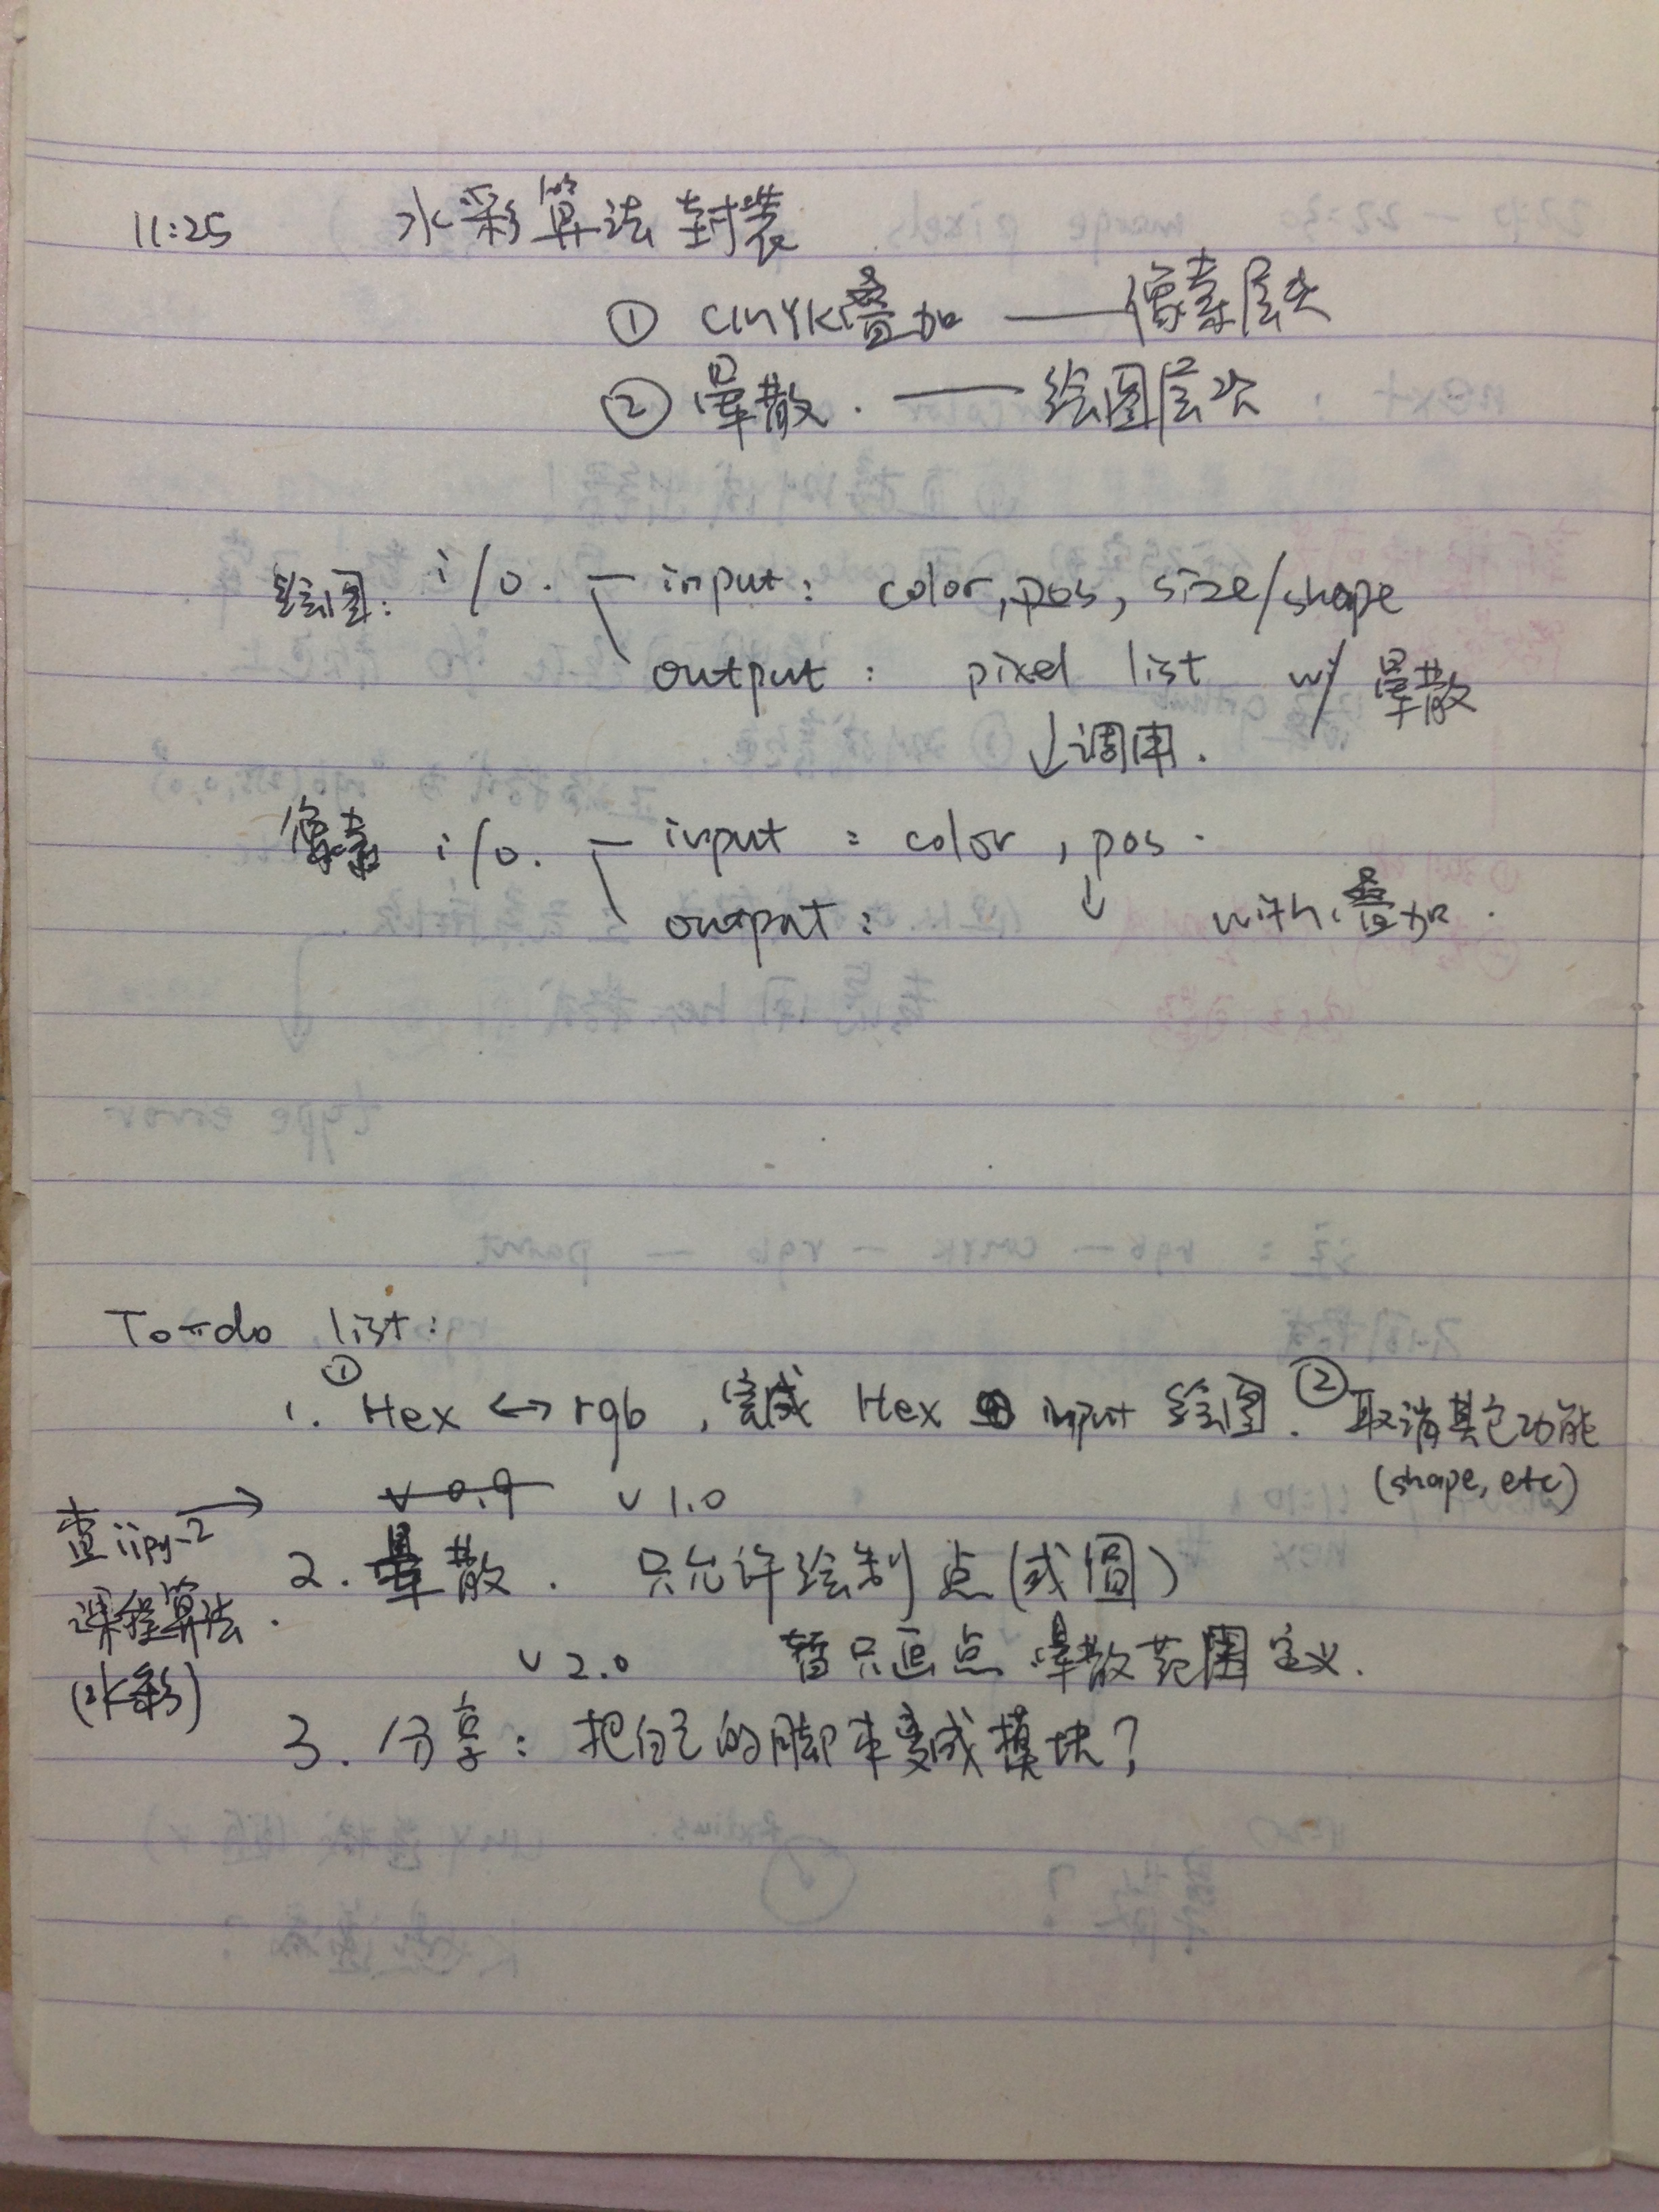 11:25 水彩算法封装
① CMYK叠加 —— 像素层次
② 晕散. —— 绘图层次
绘图: i/o. — input: color, pos, size/shape
output: pixel list w/ 晕散
↓调用.
像素 i/o. — input: color, pos.
output: ↓ with 叠加.
To-do list:
1. ① Hex ↔ rgb, 完成 Hex input 绘图. ② 取消其它功能
(shape, etc)
v 0.9 v 1.0
查iipy-2 →
2. 晕散. 只允许绘制点(或圆)
课程算法.
v 2.0 暂只画点 晕散范围定义.
(水彩)
3. 分享: 把自己的脚本变成模块?